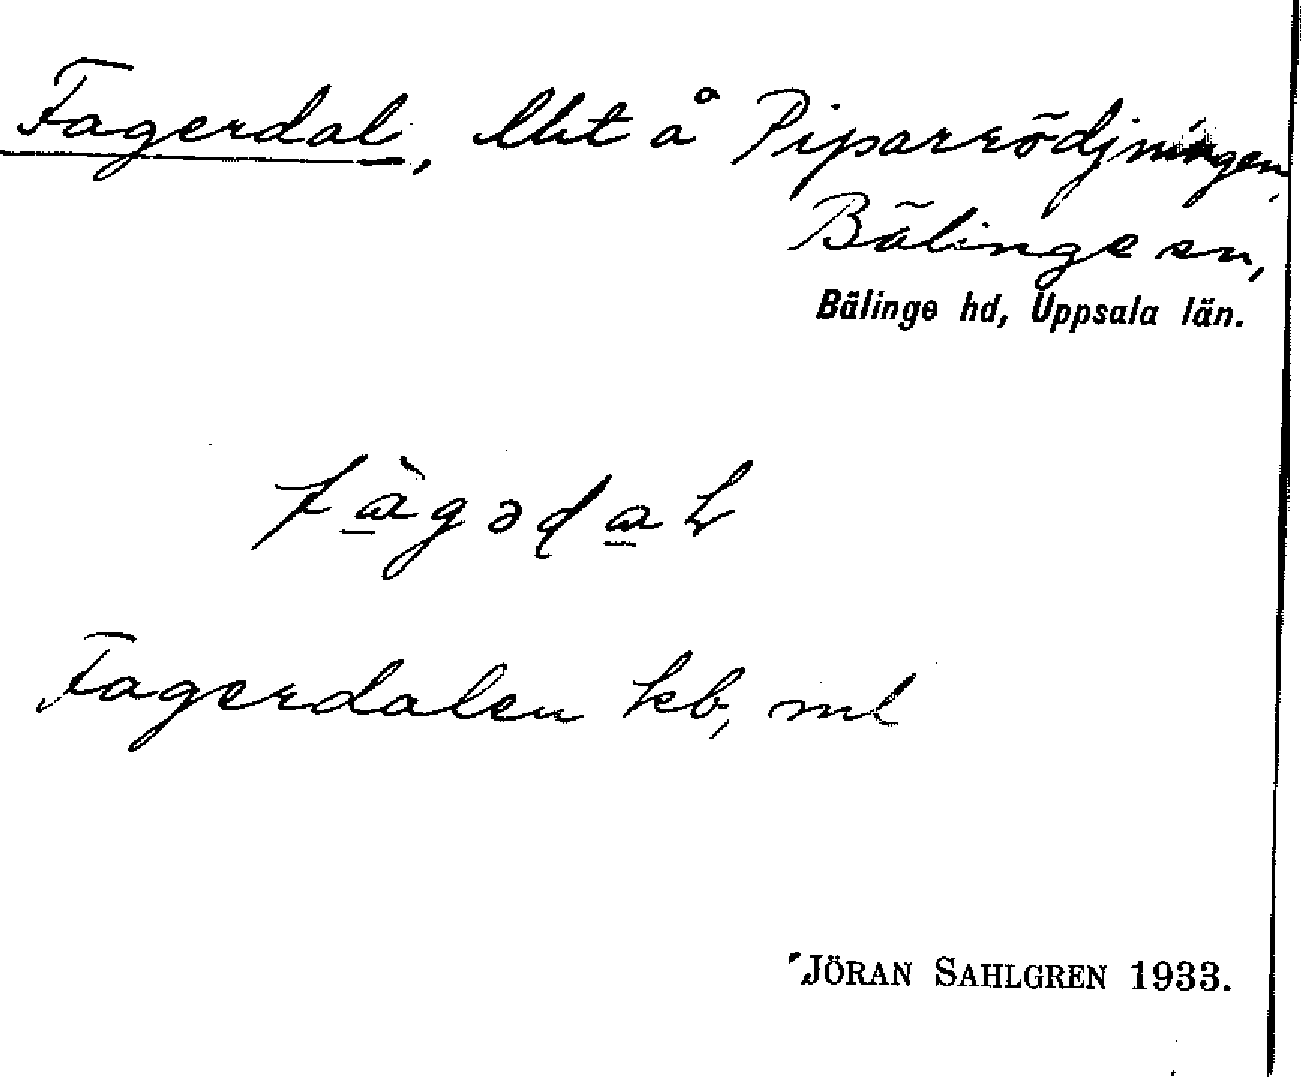 Fagerdal, lht å Piparrödjningen,
Bälinge sn,
Bälinge hd, Uppsala län.
fàgədaɫ
Fagerdalen kb, ml
JÖRAN SAHLGREN 1933.